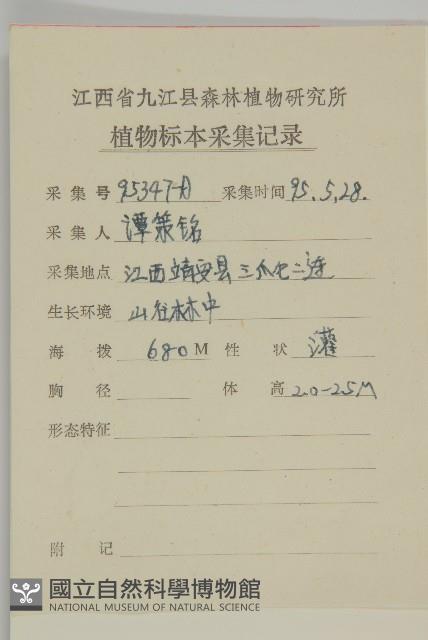 江西省九江县森林植物研究所
植物标本采集记录
采集号 95347-A 采集时间 95.5.28.
采集人 谭策铭
采集地点 江西靖安县三爪仑
生长环境 山谷林中
海拨 680M 性状 灌
胸径 体高 2.0-2.5M
形态特征
附记
國立自然科學博物館
NATIONAL MUSEUM OF NATURAL SCIENCE